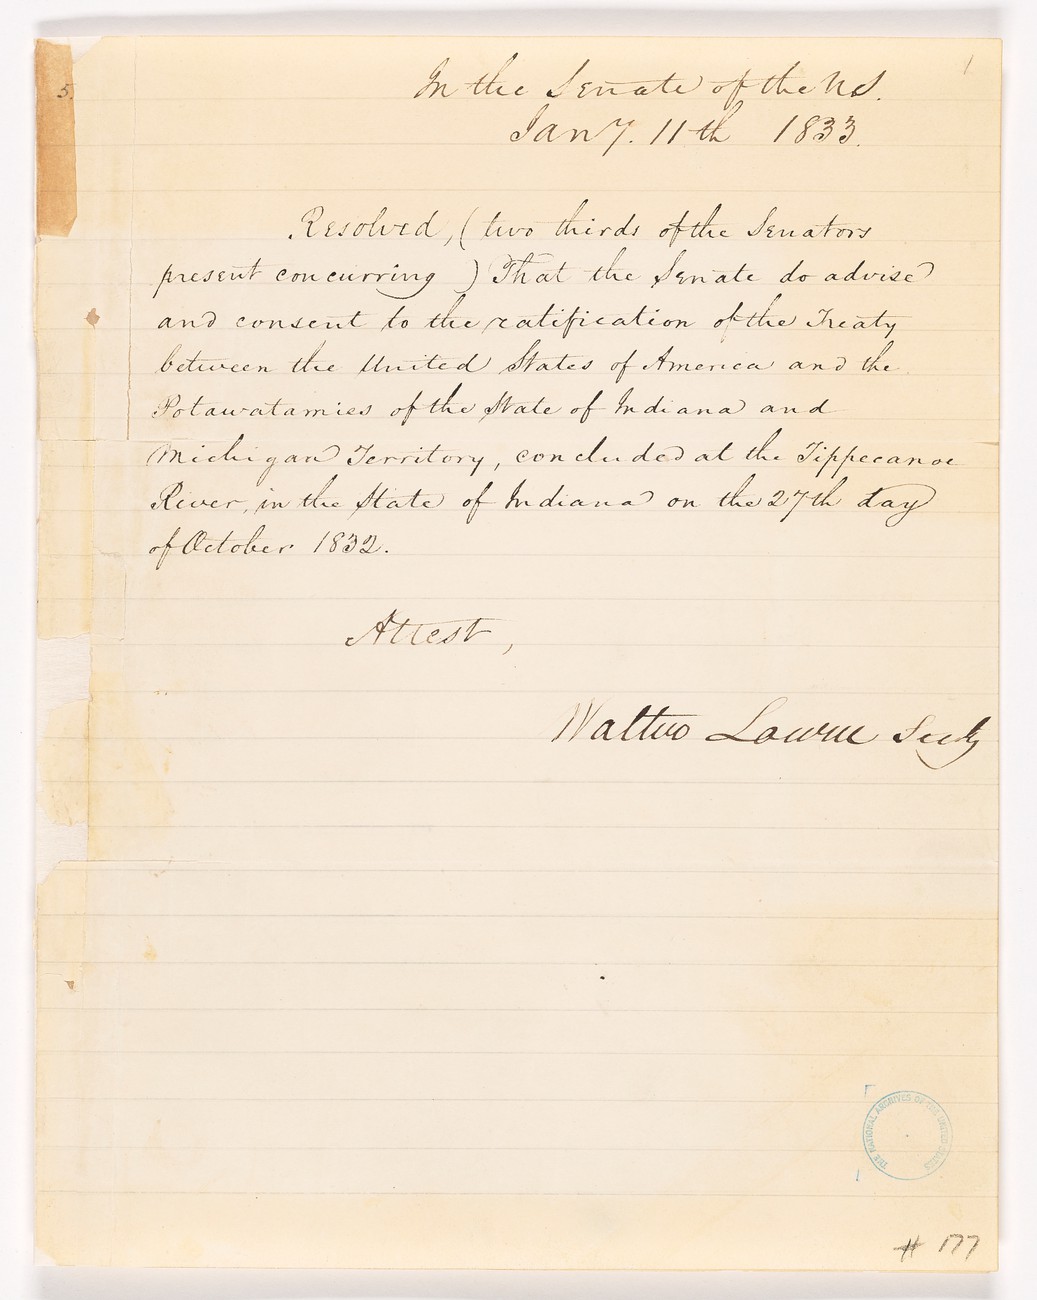 5.
1
In the Senate of the U.S.
Jany. 11th 1833.
Resolved, (two thirds of the Senators
present concurring) That the Senate do advise
and consent to the ratification of the Treaty
between the United States of America and the
Potawatamies of the State of Indiana and
Michigan Territory, concluded at the Tippecanoe
River, in the State of Indiana on the 27th day
of October 1832.
Attest,
Walter Lowrie Secy
THE NATIONAL ARCHIVES OF THE UNITED STATES
# 177